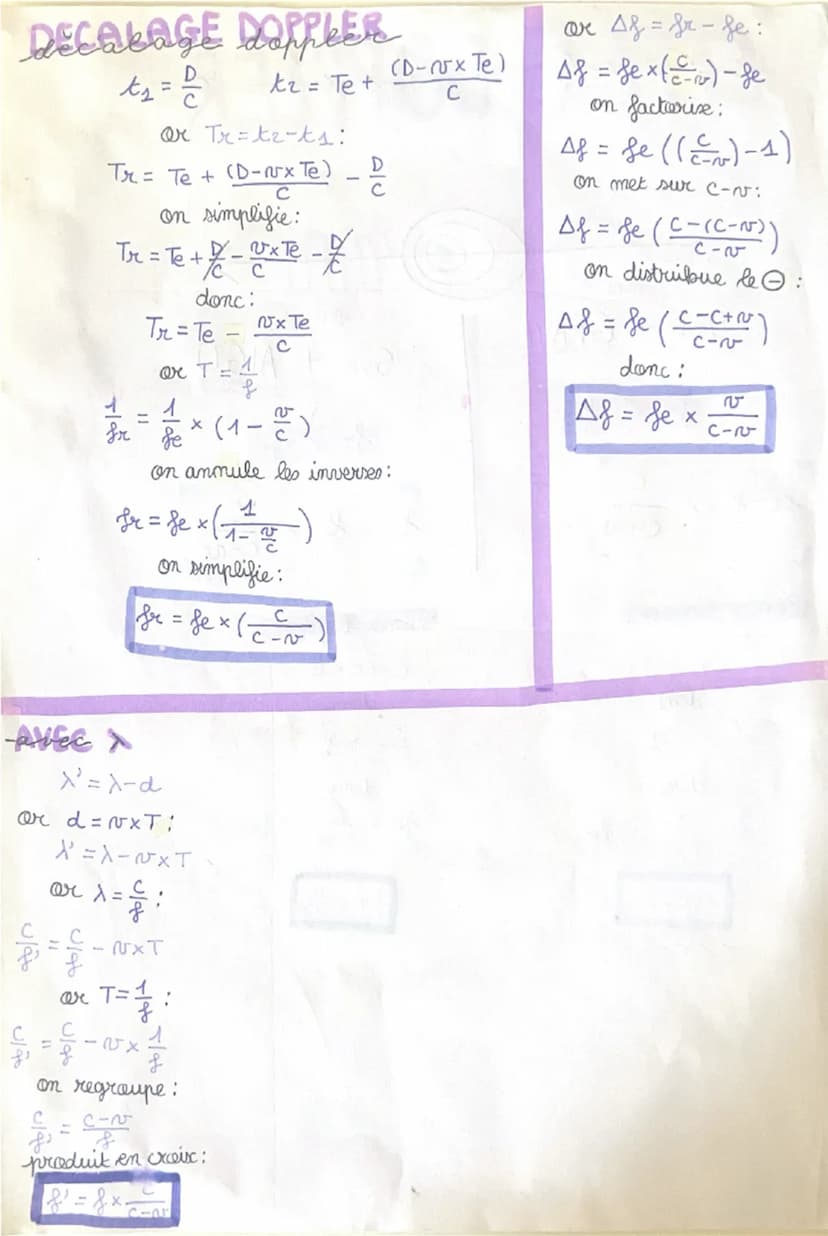 DECALAGE DOPPLER
décalage doppler
t₁ = D/C    t₂ = Te + (D-v×Te)/C
or Tr = t₂-t₁ :
Tr = Te + (D-v×Te)/C - D/C
on simplifie :
Tr = Te + D/C - v×Te/C - D/C
donc :
Tr = Te - v×Te/C
or T = 1/f
1/fr = 1/fe × (1 - v/c)
on annule les inverses :
fr = fe × (1/(1 - v/c))
on simplifie :
fr = fe × (c/(c-v))
or Δf = fr - fe :
Δf = fe × (c/(c-v)) - fe
on factorise :
Δf = fe ((c/(c-v)) - 1)
on met sur c-v :
Δf = fe ((c-(c-v))/(c-v))
on distribue le ⊖ :
Δf = fe ((c-c+v)/(c-v))
donc :
Δf = fe × v/(c-v)
-AVEC λ
λ' = λ-d
or d = v×T :
λ' = λ-v×T
or λ = C/f :
C/f' = C/f - v×T
or T = 1/f :
C/f' = C/f - v × 1/f
on regroupe :
C/f' = (C-v)/f
produit en croix :
f' = f × c/(c-v)